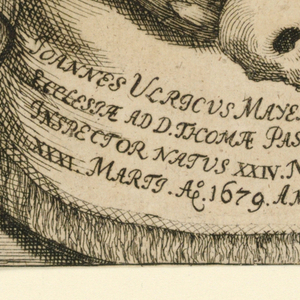 IOANNES ULRICUS MAYE
ECCLESIÆ AD D. THOMÆ PAS
INSPECTOR NATUS XXIV. N
XXXI. MARTI. Aº. 1679. A